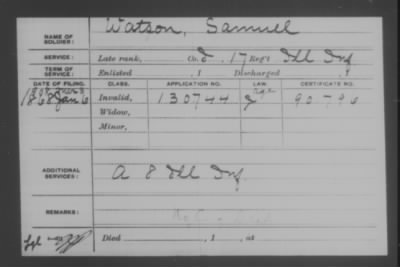 NAME OF SOLDIER: Watson, Samuel
SERVICE: Late rank, Co. I. 17 Reg't Ill Inf
TERM OF SERVICE: Enlisted , 1 Discharged , 1
DATE OF FILING. CLASS. APPLICATION NO. LAW. CERTIFICATE NO.
1868 Jan 6 Invalid, 130744 90796
Widow,
Minor,
ADDITIONAL SERVICES: A 8 Ill Inf
REMARKS:
Died , 1 , at